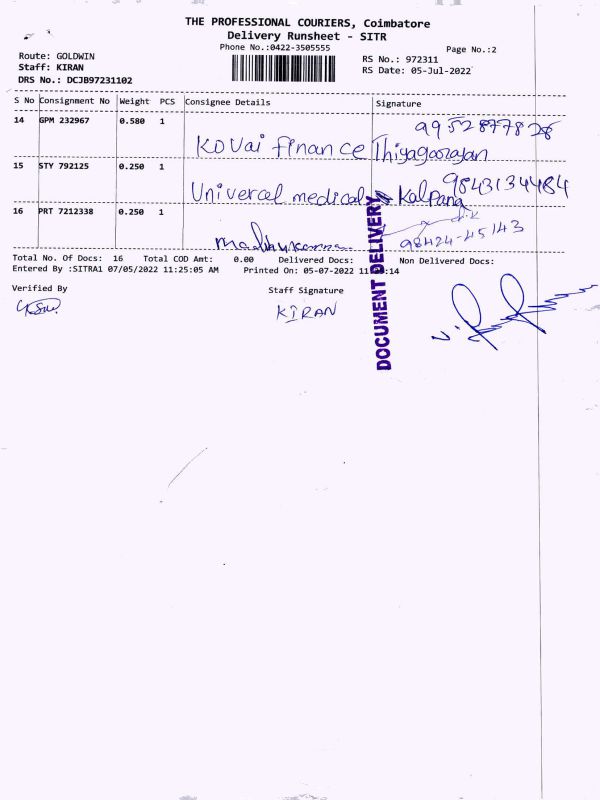 THE PROFESSIONAL COURIERS, Coimbatore
Delivery Runsheet - SITR
Phone No.:0422-3505555
Page No.:2
Route: GOLDWIN
Staff: KIRAN
DRS No.: DCJB97231102
RS No.: 972311
RS Date: 05-Jul-2022
S No Consignment No Weight PCS Consignee Details Signature
14 GPM 232967 0.580 1 Kovai finance Thiyagaarajan 9952877828
15 STY 792125 0.250 1 Univercal medical Kalpana 9843134484
16 PRT 7212338 0.250 1 98424-45143
Total No. Of Docs: 16 Total COD Amt: 0.00 Delivered Docs: Non Delivered Docs:
Entered By :SITRA1 07/05/2022 11:25:05 AM Printed On: 05-07-2022 11 :14
DOCUMENT DELIVERY
Verified By
Staff Signature
KIRAN